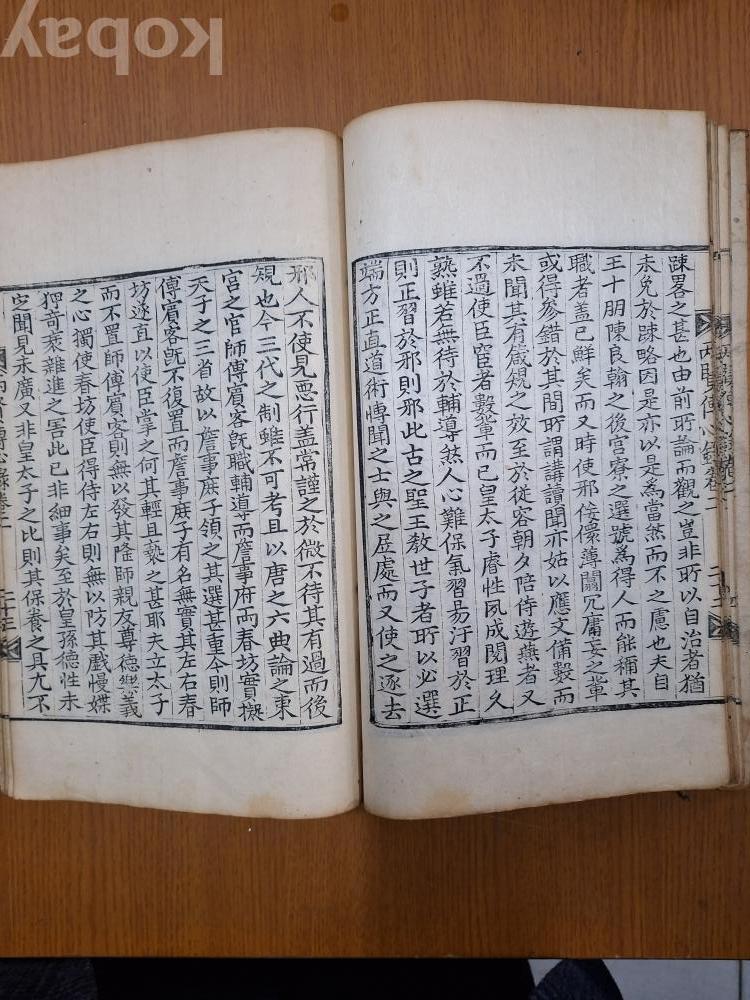 kobay
踈畧之甚也由前所論而觀之豈非所以自治者猶
未免於踈略因是亦以是爲當然而不之慮也夫自
王十朋陳良翰之後宮寮之選號為得人而能稱其
職者盖已鮮矣而又時使邪佞儇薄闒冗庸妄之輩
或得參錯於其間所謂講讀聞亦姑以應文備數而
未聞其有箴規之效至於從容朝夕陪侍遊燕者又
不過使臣宦者數輩而已皇太子睿性夙成閱理久
熟雖若無待於輔導然人心難保氣習易汙習於正
則正習於邪則邪此古之聖王教世子者所以必選
端方正直道術愽聞之士與之居處而又使之逐去
邪人不使見惡行盖常謹之於微不待其有過而後
規也今三代之制雖不可考且以唐之六典論之東
宮之官師傅賓客旣職輔導而詹事府兩春坊實擬
天子之三省故以詹事庶子領之其選甚重今則師
傅賓客旣不復置而詹事庶子有名無實其左右春
坊遂直以使臣掌之何其輕且褻之甚耶夫立太子
而不置師傅賓客則無以發其隆師親友尊德樂義
之心獨使春坊使臣得侍左右則無以防其戱慢媟
狎奇袤雜進之害此已非細事矣至於皇孫德性未
定聞見未廣又非皇太子之比則其保養之具尤不
兩賢傳心錄卷二
二十三